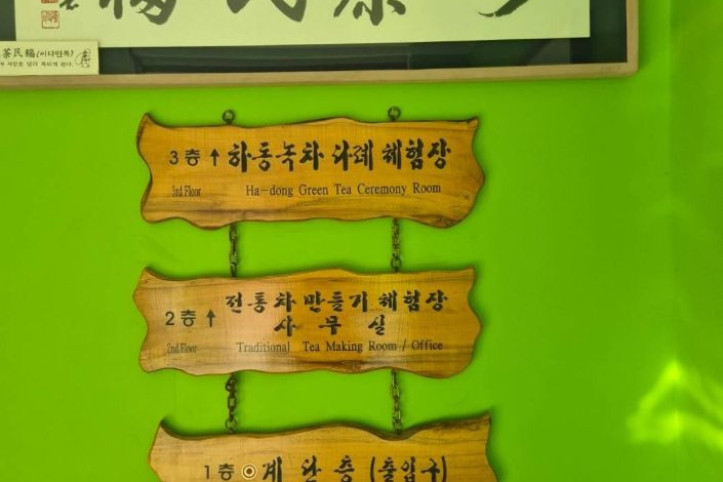 茶民福(이다민복)
3층 ↑ 하동녹차 다례 체험장
3rd Floor Ha-dong Green Tea Ceremony Room
2층 ↑ 전통차 만들기 체험장
사무실
2nd Floor Traditional Tea Making Room / Office
1층 계단층 (출입구)